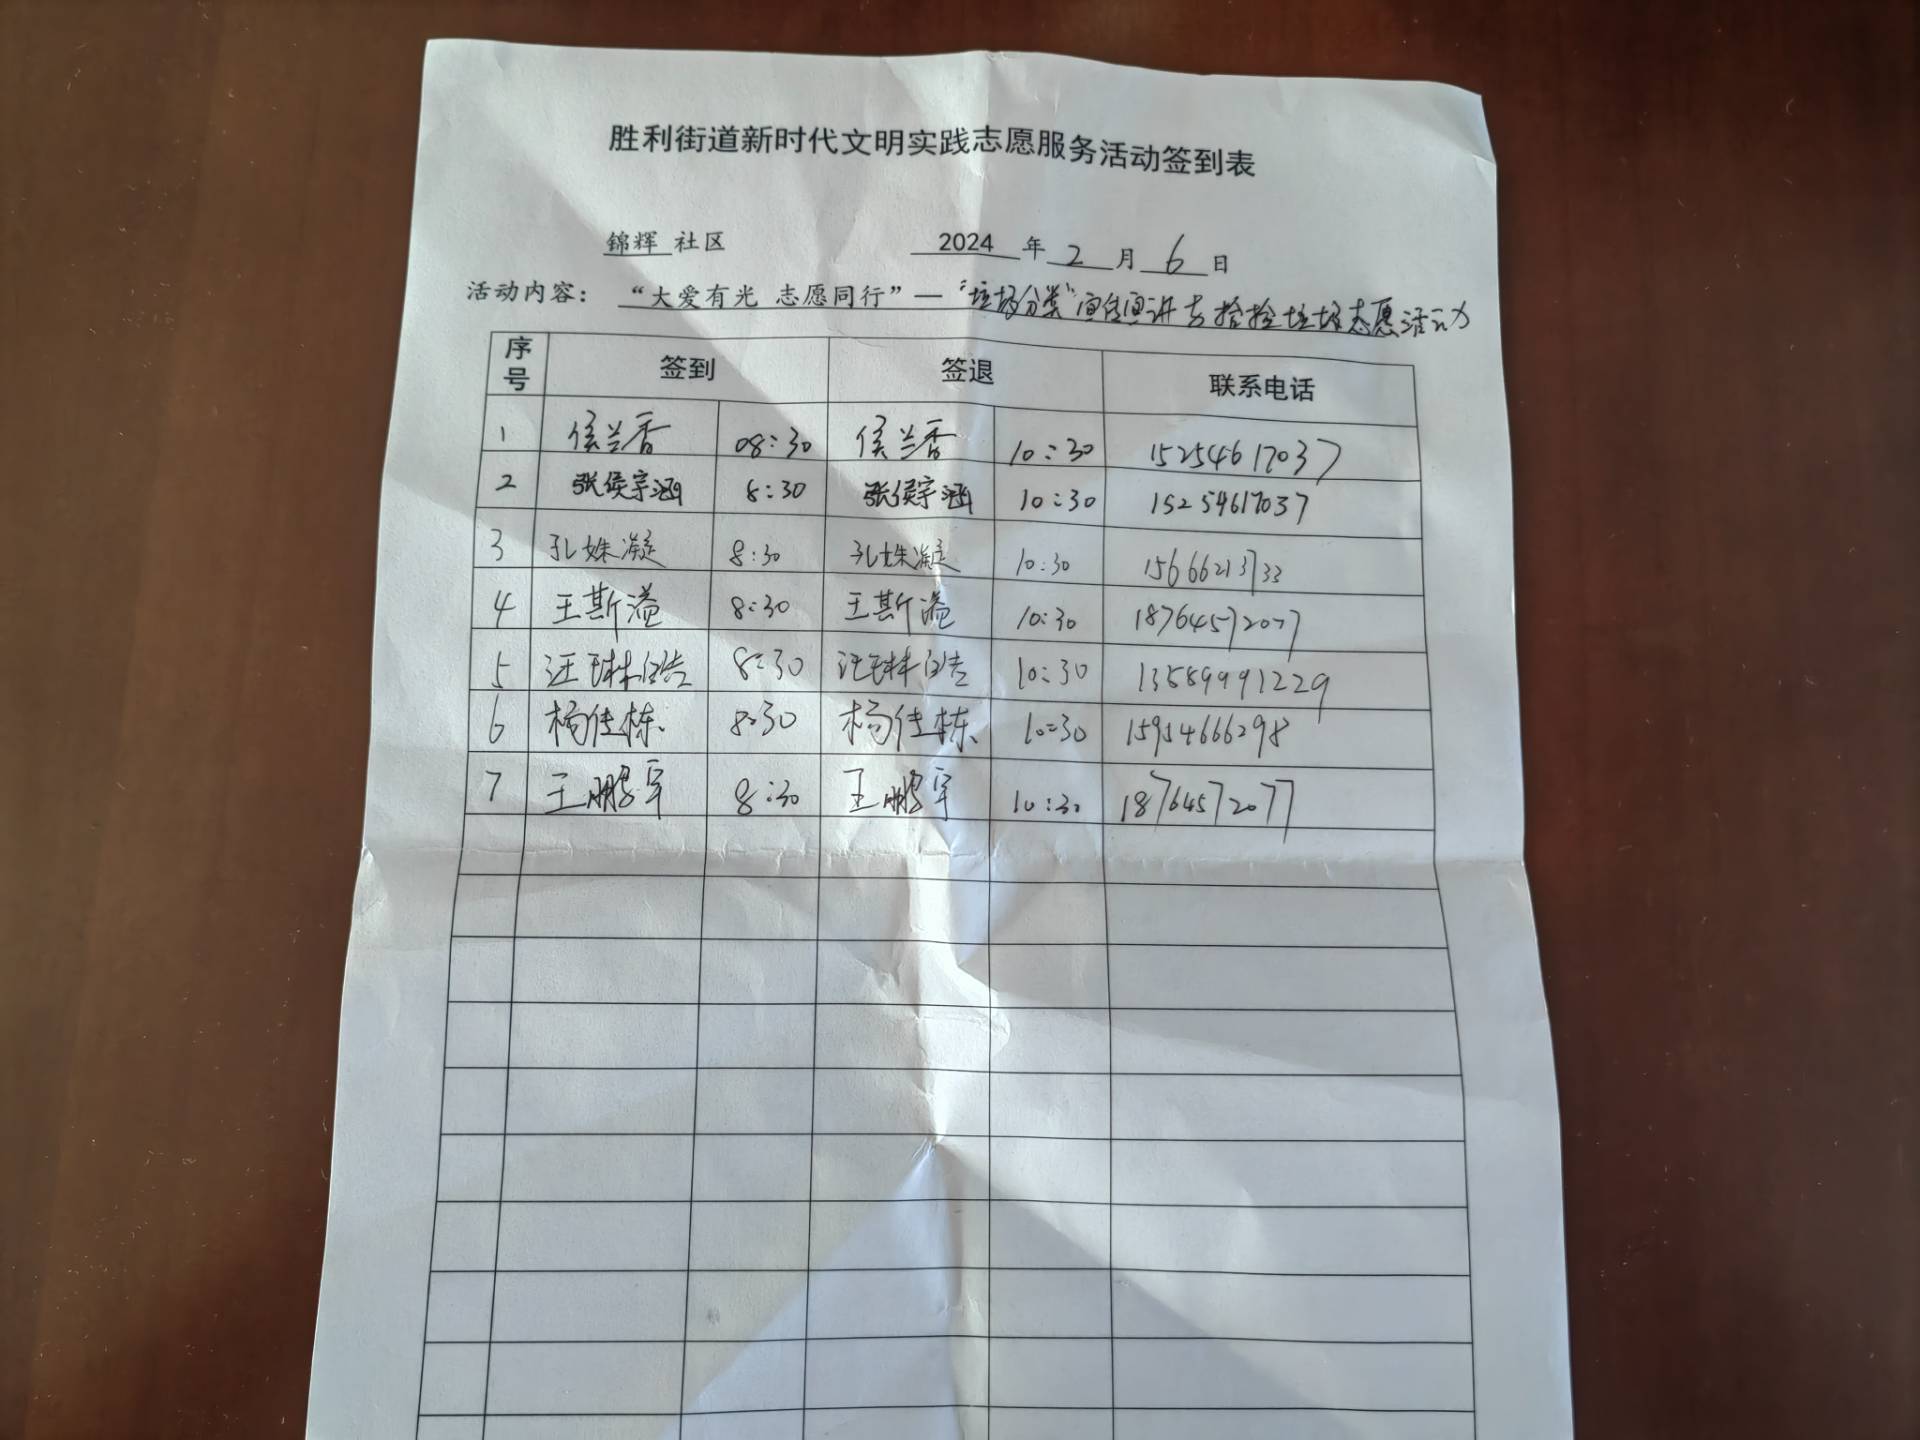 胜利街道新时代文明实践志愿服务活动签到表
锦辉 社区 2024 年 2 月 6 日
活动内容： “大爱有光 志愿同行”—“垃圾分类”宣传宣讲 捡拾垃圾志愿活动
序号 签到 签退 联系电话
1 侯兰香 08:30 侯兰香 10:30 15254617037
2 张侯宇涵 8:30 张侯宇涵 10:30 15254617037
3 孔姝凝 8:30 孔姝凝 10:30 15666213733
4 王斯溢 8:30 王斯溢 10:30 18764572077
5 汪琳皓 8:30 汪琳皓 10:30 13589991229
6 杨佳栋 8:30 杨佳栋 10:30 15954666298
7 王鹏宇 8:30 王鹏宇 10:30 18764572077